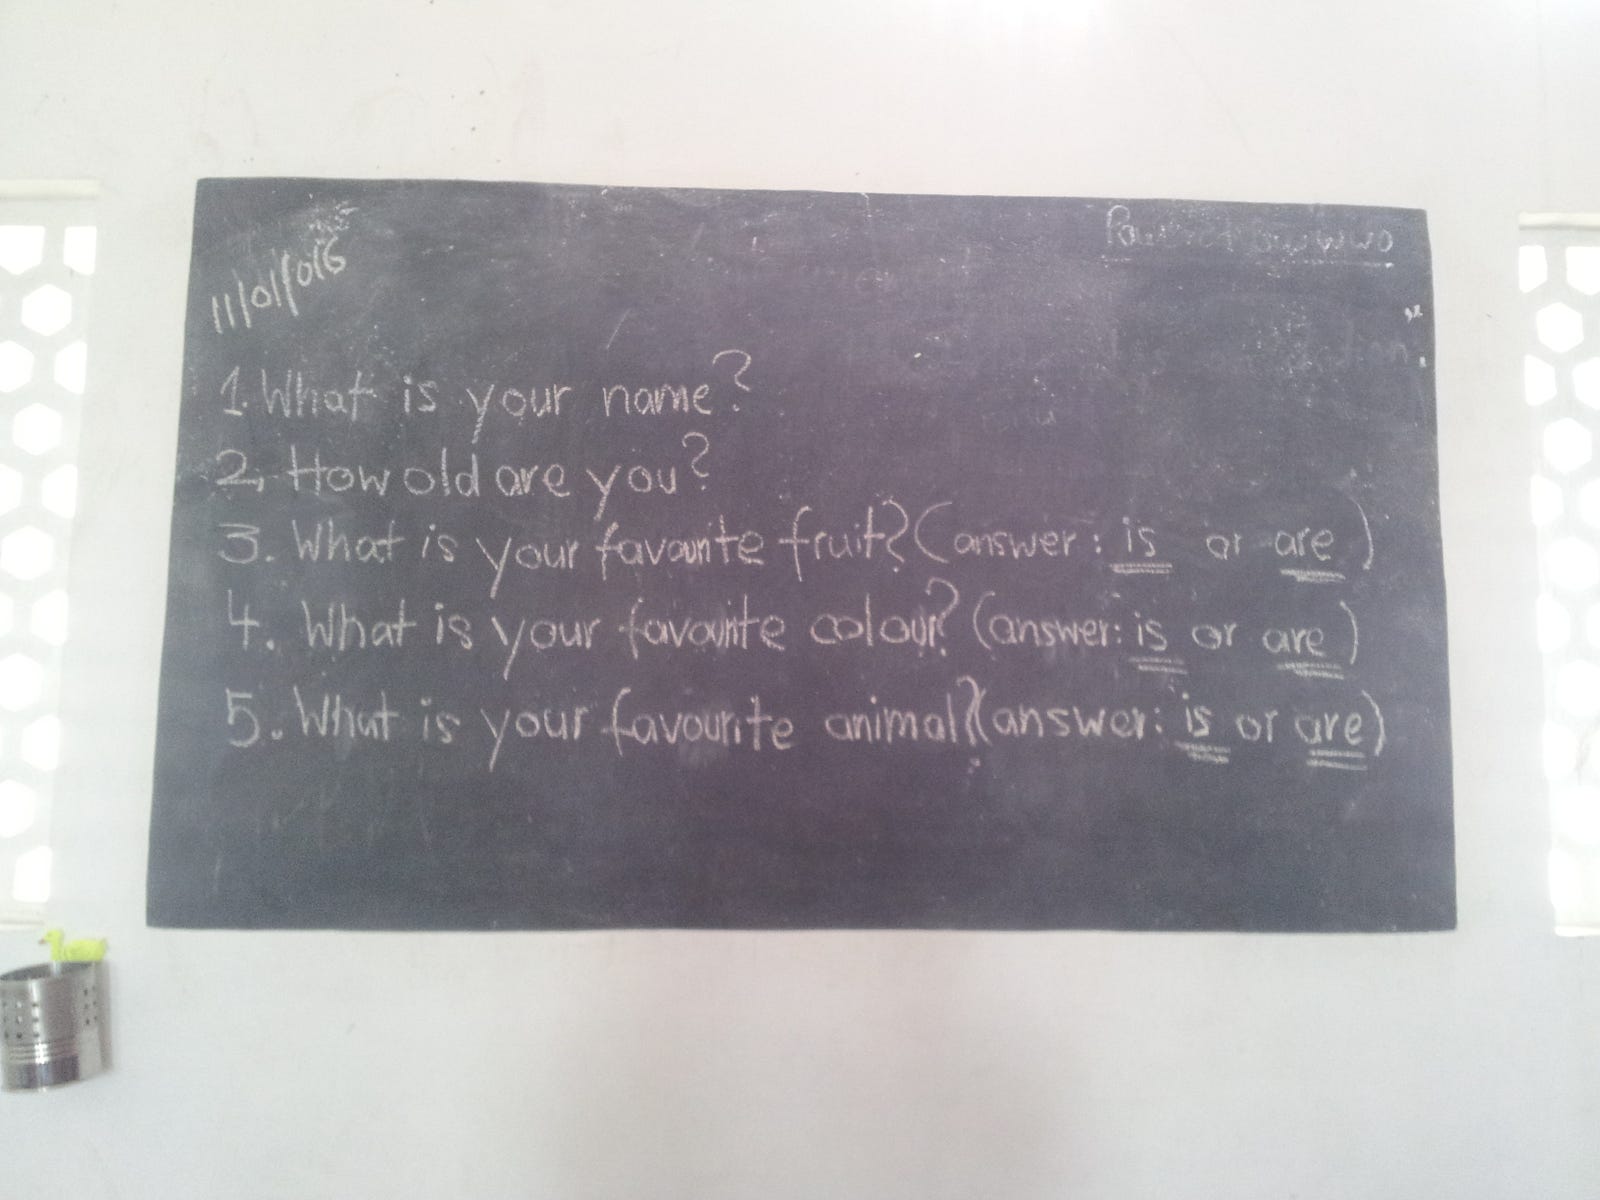 11/01/016
1. What is your name?
2. How old are you?
3. What is your favourite fruit? (answer: is or are)
4. What is your favourite colour? (answer: is or are)
5. What is your favourite animal? (answer: is or are)